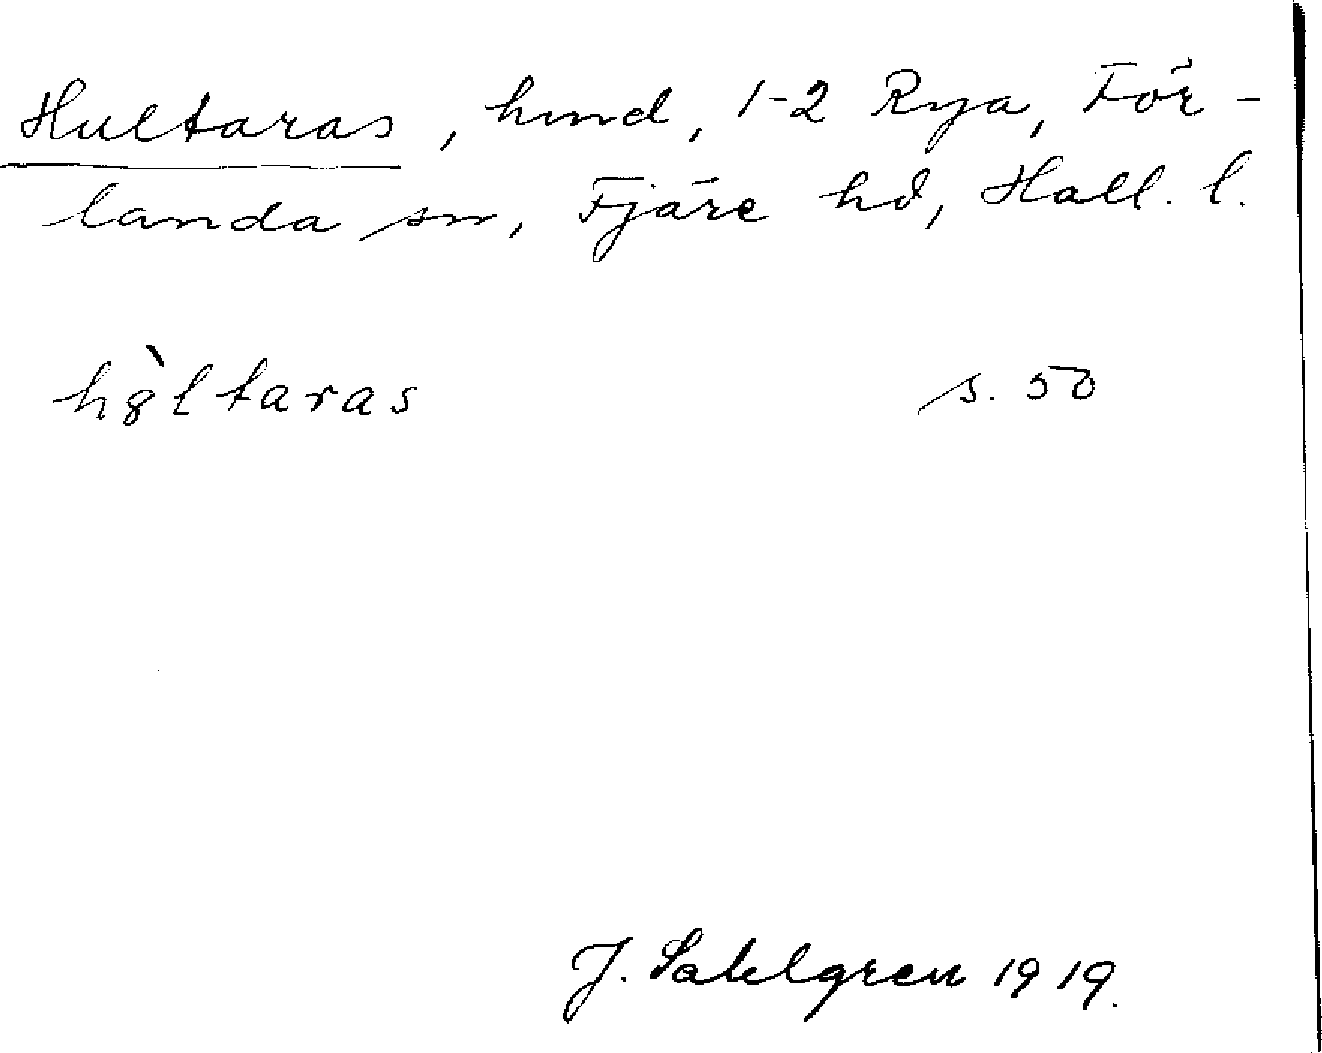 Hultaras, hmd, 1-2 Rya, För-
landa sn, Fjäre hd, Hall. l.
h8̀ltaras s. 50
J. Sahlgren 1919.